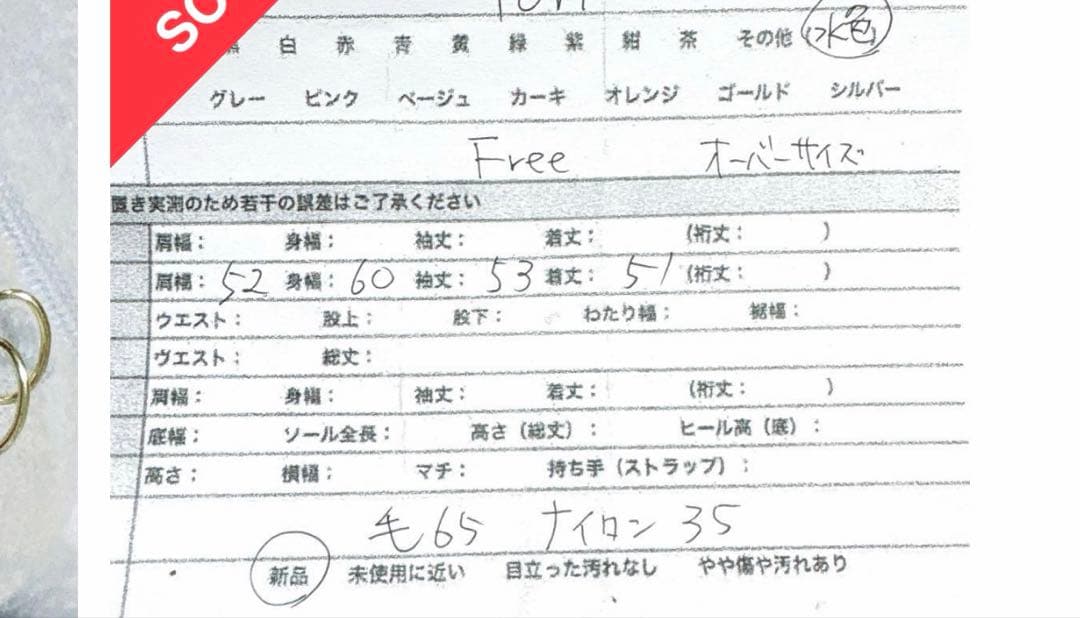 SO
白 赤 青 黄 緑 紫 紺 茶 その他 (水色)
グレー ピンク ベージュ カーキ オレンジ ゴールド シルバー
Free オーバーサイズ
置き実測のため若干の誤差はご了承ください
肩幅： 身幅： 袖丈： 着丈： (裄丈： )
肩幅：52 身幅：60 袖丈：53 着丈：51 (裄丈： )
ウエスト： 股上： 股下： わたり幅： 裾幅：
ヴエスト： 総丈：
肩幅： 身幅： 袖丈： 着丈： (裄丈： )
底幅： ソール全長： 高さ（総丈）： ヒール高（底）：
高さ： 横幅： マチ： 持ち手（ストラップ）：
毛65 ナイロン 35
新品 未使用に近い 目立った汚れなし やや傷や汚れあり